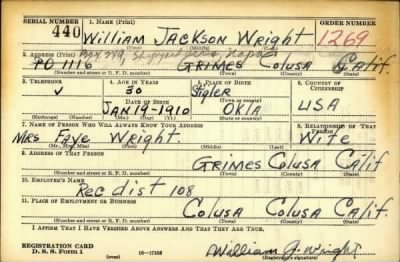 SERIAL NUMBER 1. NAME (Print) ORDER NUMBER
440 William Jackson Wright 1269
(First) (Middle) (Last)
2. ADDRESS (Print)
Box 249, Napa
PO 1116 Grimes Colusa Calif.
(Number and street or R. F. D. number) (Town) (County) (State)
3. TELEPHONE 4. AGE IN YEARS 5. PLACE OF BIRTH 6. COUNTRY OF CITIZENSHIP
30 Stigler
DATE OF BIRTH (Town or county)
JAN-19-1910 OKLA USA
(Exchange) (Number) (Mo.) (Day) (Yr.) (State or country)
7. NAME OF PERSON WHO WILL ALWAYS KNOW YOUR ADDRESS 8. RELATIONSHIP OF THAT PERSON
Mrs Faye Wright Wife
(Mr., Mrs., Miss) (First) (Middle) (Last)
9. ADDRESS OF THAT PERSON
Grimes Colusa Calif
(Number and street or R. F. D. number) (Town) (County) (State)
10. EMPLOYER'S NAME
Rec dist 108
11. PLACE OF EMPLOYMENT OR BUSINESS
Colusa Colusa Calif.
(Number and street or R. F. D. number) (Town) (County) (State)
I AFFIRM THAT I HAVE VERIFIED ABOVE ANSWERS AND THAT THEY ARE TRUE.
REGISTRATION CARD
D. S. S. Form 1 (over) 16—17105 William J. Wright
(Registrant's signature)